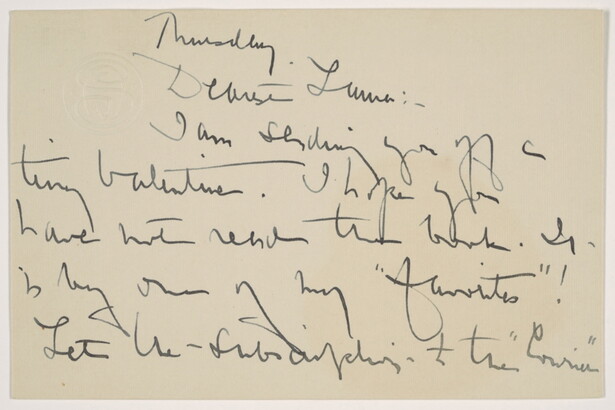 Thursday.
Dearest Lama:-
I am sending you off a
tiny Valentine. I hope you
have not read the book. It
is by one of my "favorites"!
Let the subscription to the "Courier"